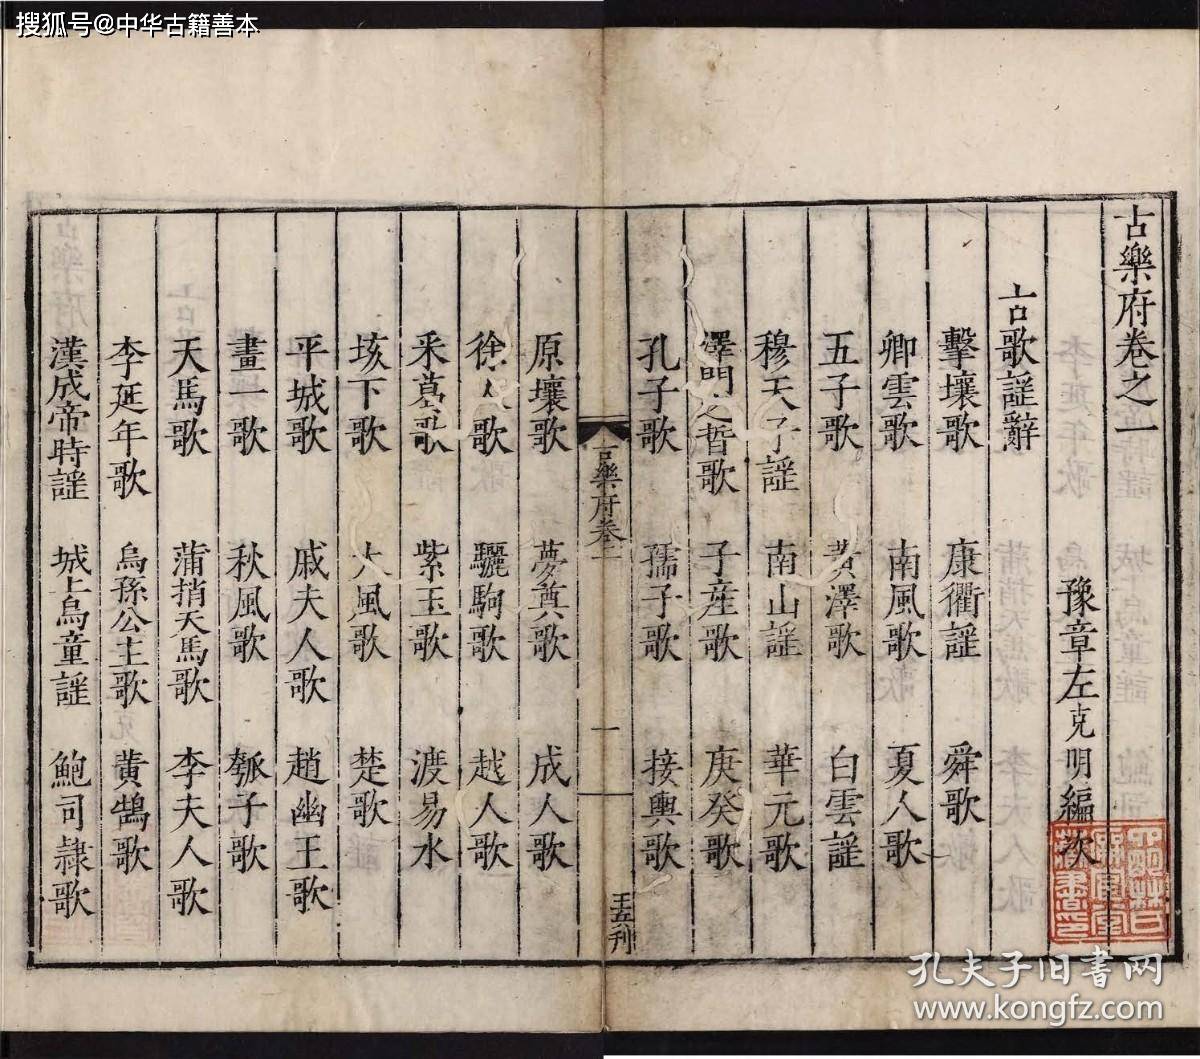 搜狐号@中华古籍善本
古樂府卷之一
豫章左克明編次
古歌謡辭
擊壤歌 康衢謡 舜歌
卿雲歌 南風歌 夏人歌
五子歌 黄澤歌 白雲謡
穆天子謡 南山謡 華元歌
澤門之晳歌 子産歌 庚癸歌
孔子歌 孺子歌 接輿歌
古樂府卷一
一
王五刋
原壤歌 夢奠歌 成人歌
徐人歌 驪駒歌 越人歌
采葛歌 紫玉歌 渡易水
垓下歌 大風歌 楚歌
平城歌 戚夫人歌 趙幽王歌
畫一歌 秋風歌 瓠子歌
天馬歌 蒲捎天馬歌 李夫人歌
李延年歌 烏孫公主歌 黄鵠歌
漢成帝時謡 城上烏童謡 鮑司隷歌
孔夫子旧书网
www.kongfz.com